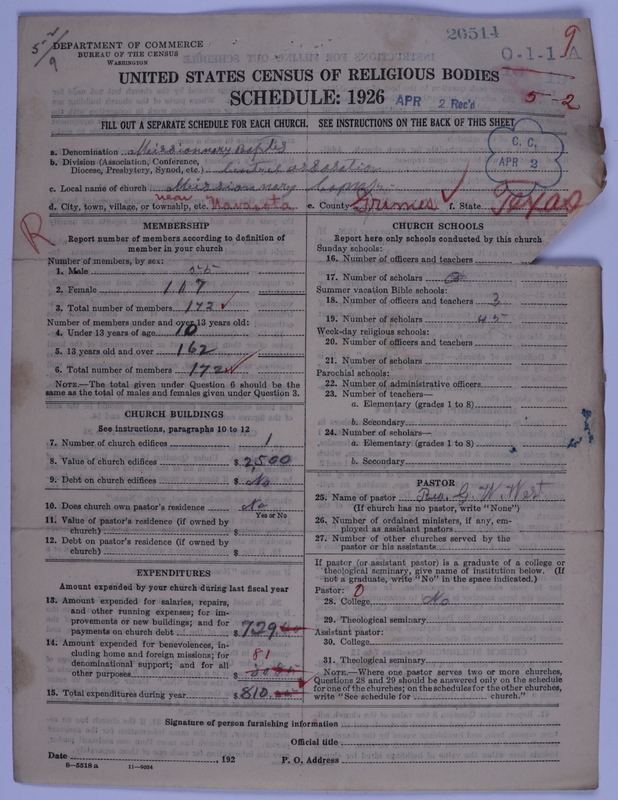 5-2/9
26514
9
DEPARTMENT OF COMMERCE
BUREAU OF THE CENSUS
WASHINGTON
0-1-1 A
UNITED STATES CENSUS OF RELIGIOUS BODIES
SCHEDULE: 1926
APR 2 Rec'd
5-2
FILL OUT A SEPARATE SCHEDULE FOR EACH CHURCH. SEE INSTRUCTIONS ON THE BACK OF THIS SHEET
C. C.
APR 2
a. Denomination Missionary Baptis
b. Division (Association, Conference,
Diocese, Presbytery, Synod, etc.)
c. Local name of church Missionary Baptis
d. City, town, village, or township, etc. near Navasota e. County Grimes f. State Texas
R
MEMBERSHIP
Report number of members according to definition of
member in your church
Number of members, by sex:
1. Male 55
2. Female 117
3. Total number of members 172
Number of members under and over 13 years old:
4. Under 13 years of age 10
5. 13 years old and over 162
6. Total number of members 172
NOTE.—The total given under Question 6 should be the
same as the total of males and females given under Question 3.
CHURCH BUILDINGS
See instructions, paragraphs 10 to 12
7. Number of church edifices 1
8. Value of church edifices $ 2,500
9. Debt on church edifices $ No
10. Does church own pastor's residence No
Yes or No
11. Value of pastor's residence (if owned by
church) $
12. Debt on pastor's residence (if owned by
church) $
EXPENDITURES
Amount expended by your church during last fiscal year
13. Amount expended for salaries, repairs,
and other running expenses; for im-
provements or new buildings; and for
payments on church debt $ 729
14. Amount expended for benevolences, in-
cluding home and foreign missions; for
denominational support; and for all
other purposes $ 81
15. Total expenditures during year $ 810
CHURCH SCHOOLS
Report here only schools conducted by this church
Sunday schools:
16. Number of officers and teachers
17. Number of scholars
Summer vacation Bible schools:
18. Number of officers and teachers 3
19. Number of scholars 45
Week-day religious schools:
20. Number of officers and teachers
21. Number of scholars
Parochial schools:
22. Number of administrative officers
23. Number of teachers—
a. Elementary (grades 1 to 8)
b. Secondary
24. Number of scholars—
a. Elementary (grades 1 to 8)
b. Secondary
PASTOR
25. Name of pastor Rev. G. W. West
(If church has no pastor, write "None")
26. Number of ordained ministers, if any, em-
ployed as assistant pastors
27. Number of other churches served by the
pastor or his assistants
If pastor (or assistant pastor) is a graduate of a college or
theological seminary, give name of institution below. (If
not a graduate, write "No" in the space indicated.)
Pastor: 0
28. College No
29. Theological seminary
Assistant pastor:
30. College
31. Theological seminary
NOTE.—Where one pastor serves two or more churches,
Questions 28 and 29 should be answered only on the schedule
for one of the churches; on the schedules for the other churches,
write "See schedule for church."
Signature of person furnishing information
Official title
Date , 192 P. O. Address
8-5518 a 11-9034